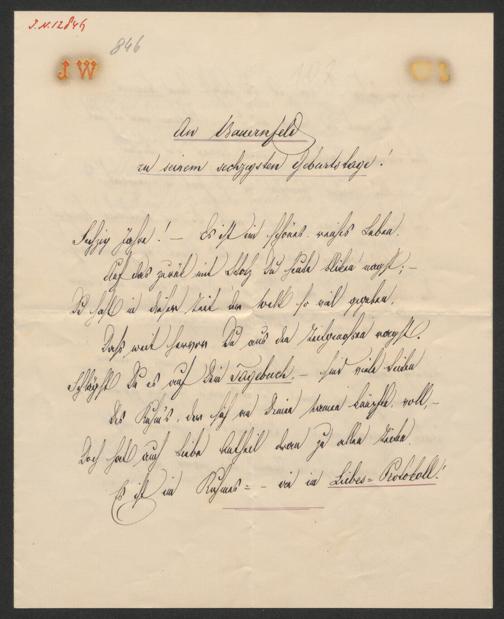 J.N.12846
846
W J
An Bauernfeld
zu seinem sechzigsten Geburtstage!
Sechzig Jahre! – Es ist ein schönes, reiches Leben,
Auf das zurück mit Stolz Du heute blicken magst; –
Du hast in dieser Zeit der Welt so viel gegeben,
Daß weit hervor Du aus den Zeitgenossen ragst.
Schlägst Du es auf Dein Tagebuch, – sind viele Seiten
Des Ruhm's, der sich an Deinen Namen knüpfte, voll, –
Doch hat auch Liebe Antheil dran zu allen Zeiten.
Es ist ein Ruhmes= – wie ein Liebes=Protokoll!